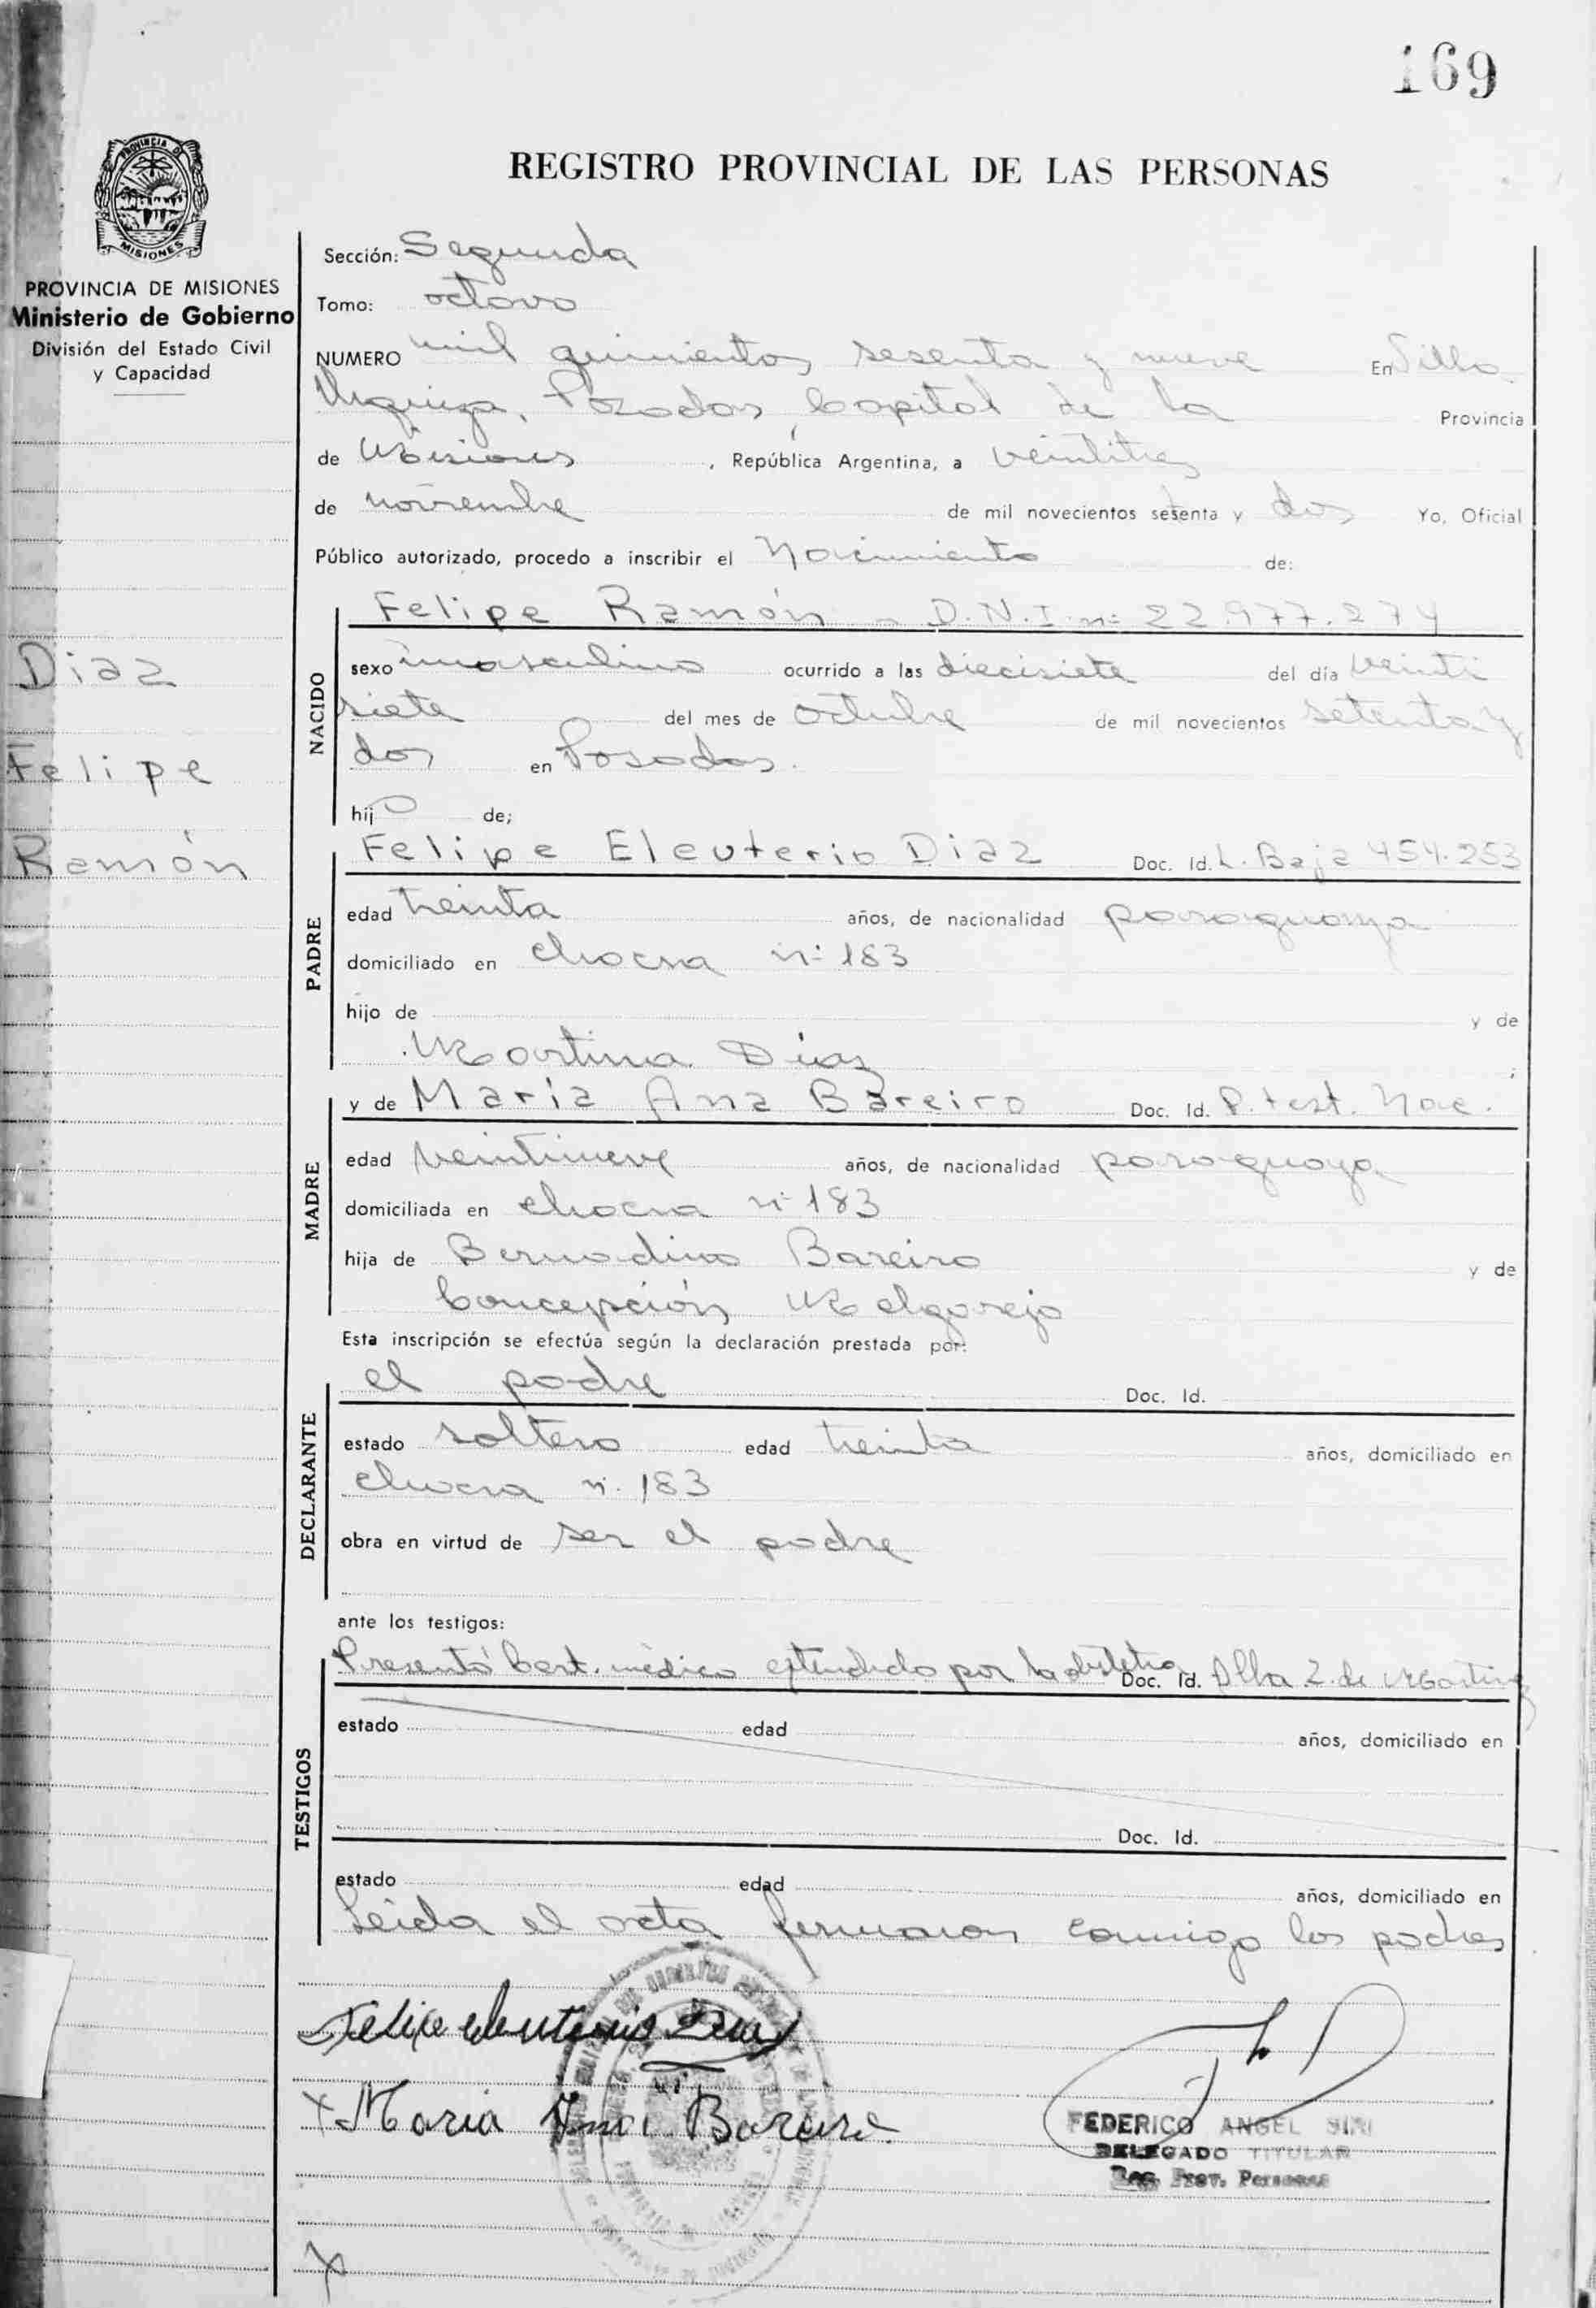 169
REGISTRO PROVINCIAL DE LAS PERSONAS
PROVINCIA DE
MISIONES
PROVINCIA DE MISIONES
Ministerio de Gobierno
División del Estado Civil
y Capacidad
Diaz
Felipe
Ramón
Sección: Segunda
Tomo: octavo
NUMERO mil quinientos sesenta y nueve En Villa
Urquiza, Posadas, Capital de la Provincia
de Misiones, República Argentina, a veintitres
de noviembre de mil novecientos setenta y dos Yo, Oficial
Público autorizado, procedo a inscribir el Nacimiento de:
NACIDO
Felipe Ramón - D.N.I nº 22.977.274
sexo masculino ocurrido a las diecisiete del día veinti
siete del mes de octubre de mil novecientos setenta y
dos en Posadas.
hijo de;
PADRE
Felipe Eleuterio Diaz Doc. Id. L. Baja 454.253
edad treinta años, de nacionalidad paraguaya
domiciliado en chacra nº 183
hijo de y de
Martina Diaz ;
MADRE
y de María Ana Bareiro Doc. Id. P. test. Nac.
edad veintinueve años, de nacionalidad paraguaya
domiciliada en chacra nº 183
hija de Bernardino Bareiro y de
Concepción Melgarejo
Esta inscripción se efectúa según la declaración prestada por:
DECLARANTE
el padre Doc. Id.
estado soltero edad treinta años, domiciliado en
chacra nº 183
obra en virtud de ser el padre
ante los testigos:
TESTIGOS
Presentó Cert. médico extendido por la obstetra Doc. Id. Alba Z. de Martinez
estado edad años, domiciliado en
Doc. Id.
estado edad años, domiciliado en
Leida el acta firmaron conmigo los padres
Felipe Eleuterio Diaz
x Maria Ana Bareiro
FEDERICO ANGEL SIRI
DELEGADO TITULAR
Reg. Prov. Personas
x